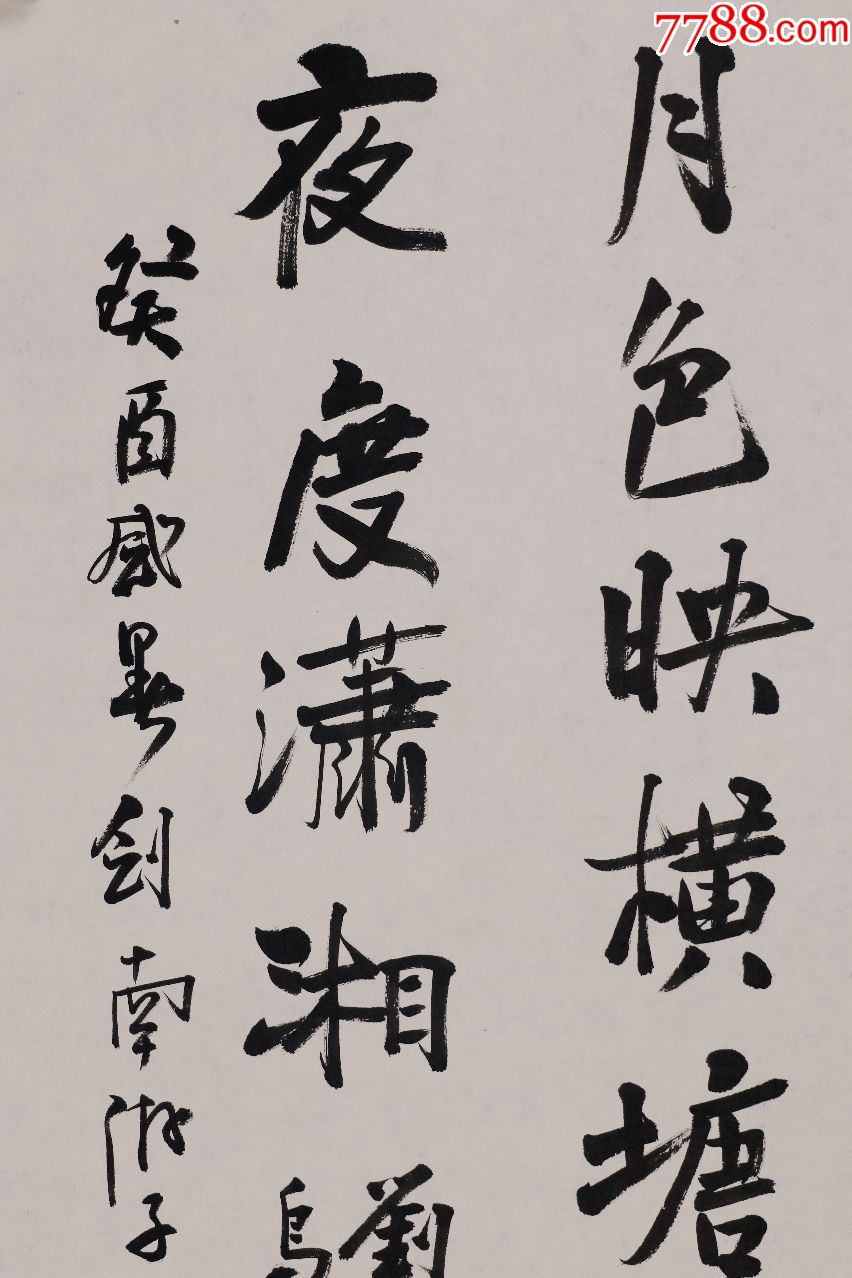 7788.com
月色映横塘
夜度瀟湘
劉
癸酉盛暑剑南游子